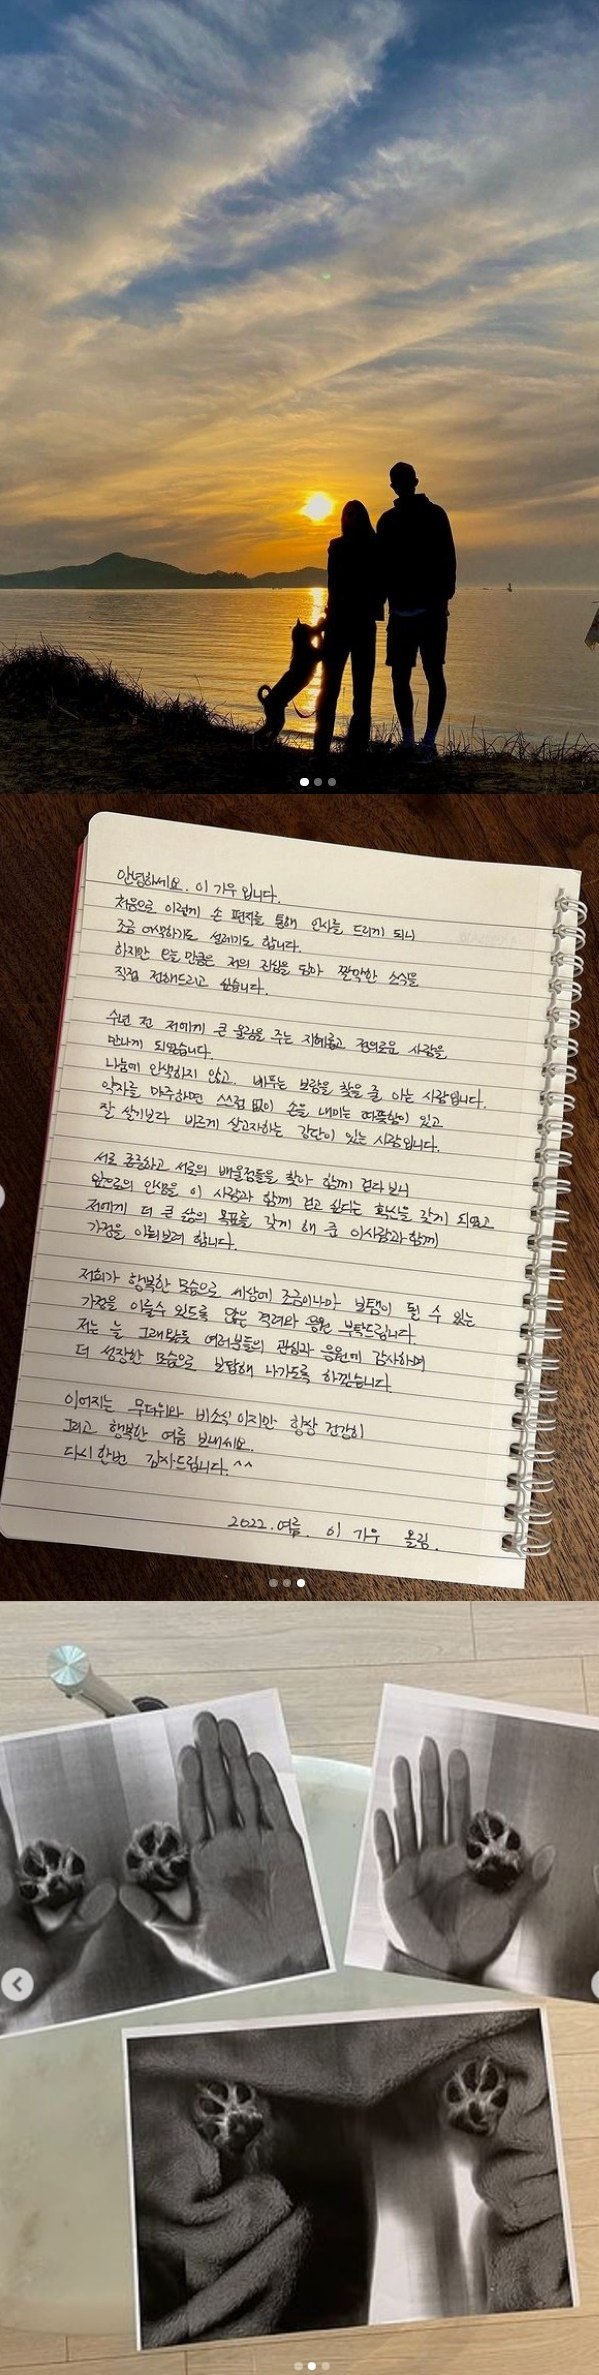 안녕하세요. 이 가우 입니다.
처음으로 이렇게 손 편지를 통해 인사를 드리게 되니
조금 어색하기도 설레기도 합니다.
하지만 오늘 만큼은 저의 진심을 담아 짤막한 소식을
직접 전해드리고 싶습니다.
수년 전 저에게 큰 울림을 주는 지혜롭고 정의로운 사람을
만나게 되었습니다.
나눔에 인색하지 않고. 베푸는 보람을 찾을 줄 아는 사람입니다.
약자를 마주하면 스스럼 없이 손을 내미는 따뜻함이 있고
잘 살기보다 바르게 살고자하는 강단이 있는 사람입니다.
서로 존중하고 서로의 배울점들을 찾아 함께 걷다보니
앞으로의 인생을 이 사람과 함께 걷고 싶다는 확신을 갖게 되었고
저에게 더 큰 삶의 목표를 갖게 해 준 이사람과 함께
가정을 이뤄보려 합니다.
저희가 행복한 모습으로 세상에 조금이나마 보탬이 될 수 있는
가정을 이룰수 있도록 많은 격려와 응원 부탁드립니다.
저는 늘 그래왔듯 여러분들의 관심과 응원에 감사하며
더 성장한 모습으로 보답해 나가도록 하겠습니다.
이어지는 무더위와 비소식 이지만 항상 건강히
그리고 행복한 여름 보내세요.
다시 한번 감사드립니다.^^
2022.여름. 이 가우 올림.